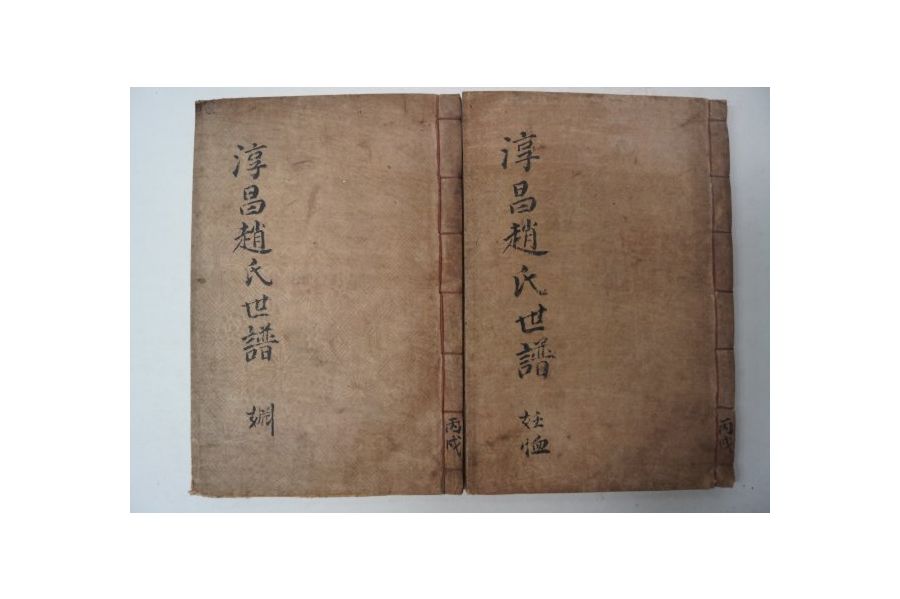 淳昌趙氏世譜
丙戌
淳昌趙氏世譜
丙戌